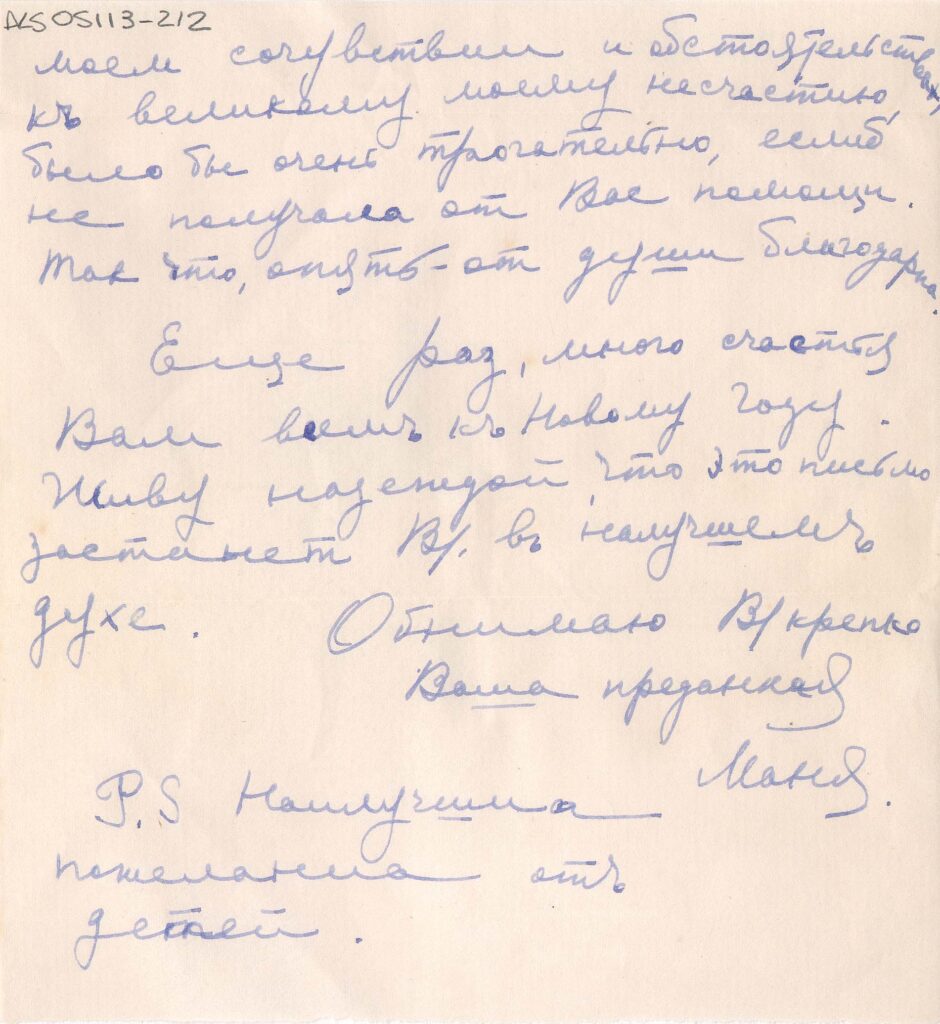 ALSOS113-212
моем сочувствии и обстоятельствах,
къ великому моему несчастию,
было бы очень трогательно, еслиб
не получала от Вас помощи.
Так что, опять-от души благодарна.
Еще раз, много счастья
Вам всемъ къ Новому году.
Живу надеждой, что это письмо
застанет В/. въ налучшемъ
духе. Обнимаю В/ крепко
Ваша преданная
Маня.
P.S Наилучшиа
пожеланиа отъ
детей.